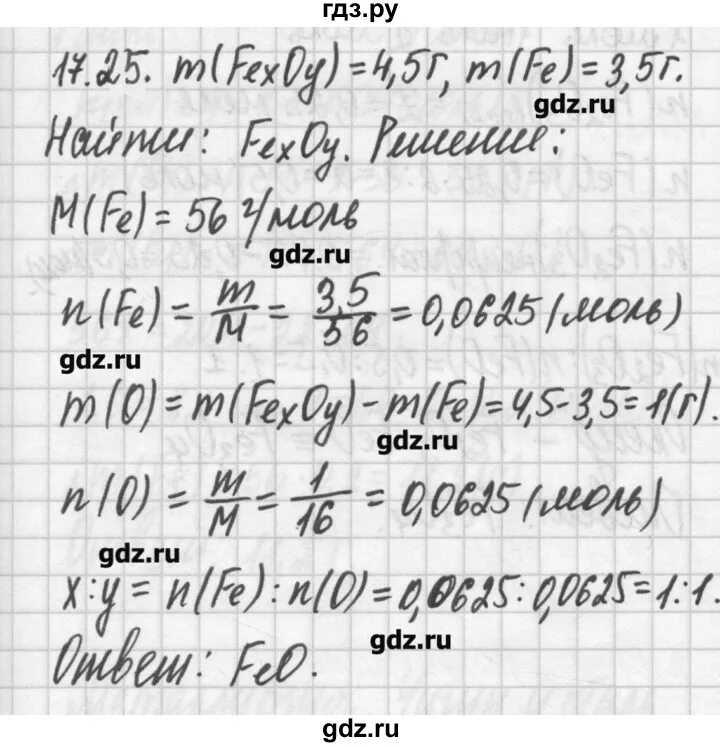 гдз.ру
17.25. m(FexOy)=4,5г, m(Fe)=3,5г.
gdz.ru
Найти: FexOy. Решение:
M(Fe)=56 г/моль
gdz.ru
n(Fe) = m/M = 3,5/56 = 0,0625 (моль)
gdz.ru
m(O) = m(FexOy)-m(Fe)=4,5-3,5=1(г).
gdz.ru
n(O) = m/M = 1/16 = 0,0625 (моль)
gdz.ru
x:y = n(Fe):n(O)=0,0625:0,0625=1:1.
gdz.ru
Ответ: FeO.
gdz.ru